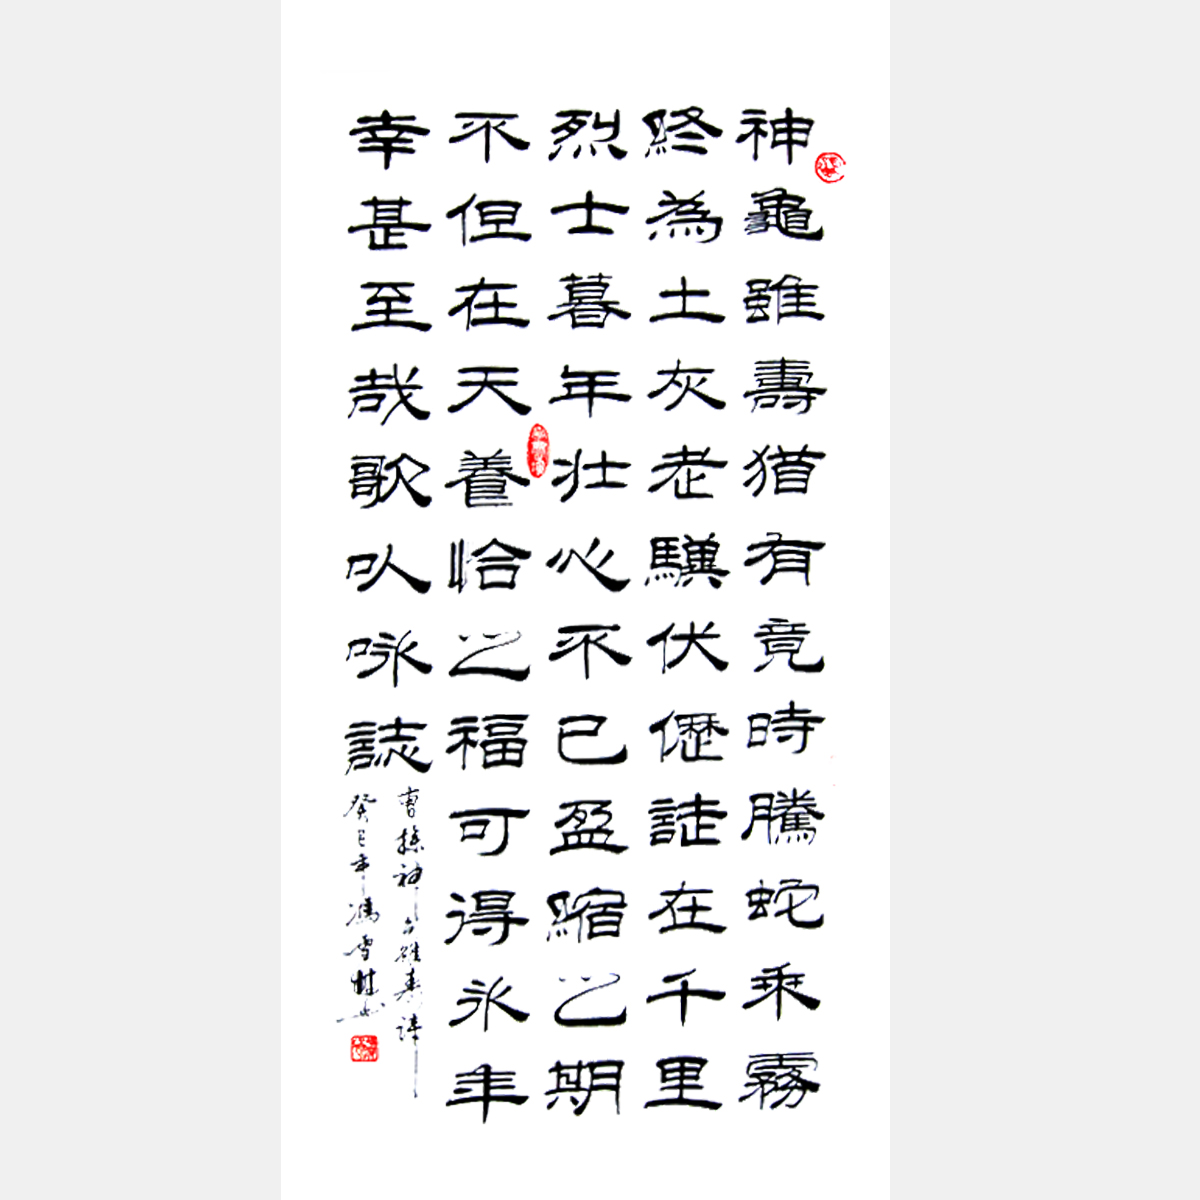 神龜雖壽猶有竟時騰蛇乘霧
終為土灰老驥伏櫪誌在千里
烈士暮年壯心不已盈縮之期
不但在天養恰之福可得永年
幸甚至哉歌以咏誌
曹操神龟雖寿詩
癸巳年馮雪